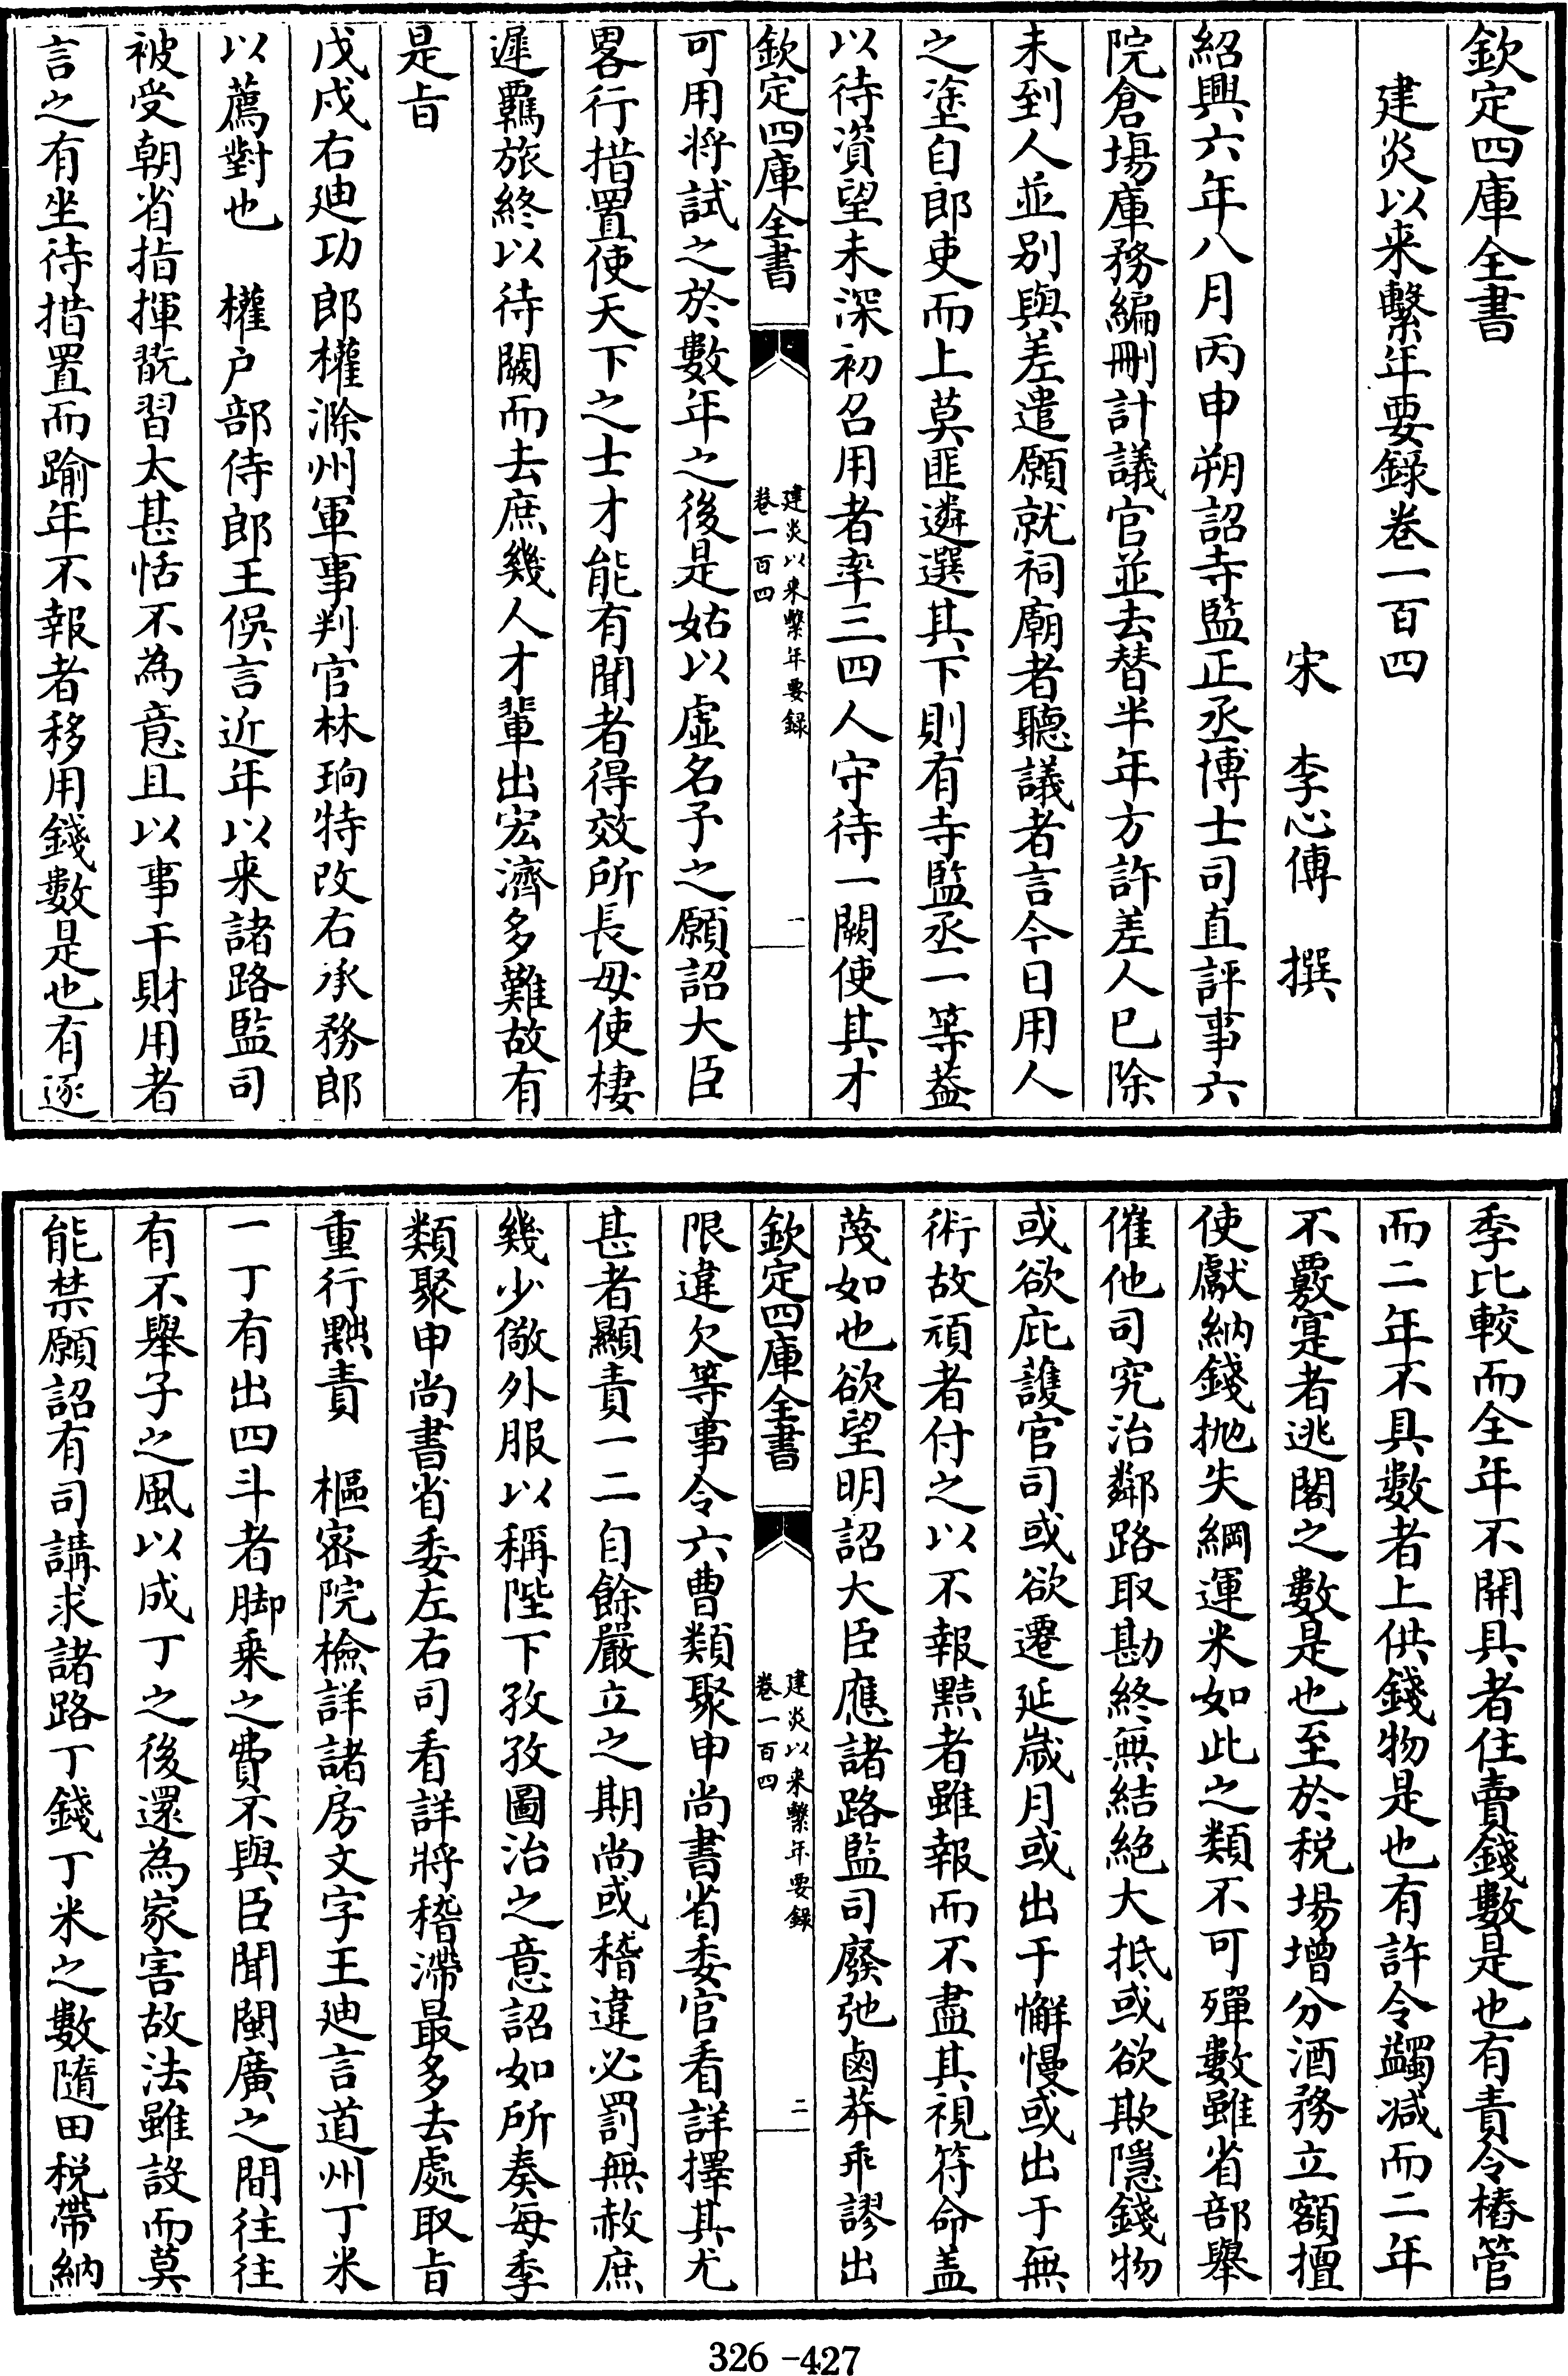 欽定四庫全書
建炎以来繫年要錄卷一百四
宋 李心傳 撰
紹興六年八月丙申朔詔寺監正丞博士司直評事六
院倉塲庫務編刪計議官並去替半年方許差人已除
未到人並別與差遣願就祠廟者聽議者言今日用人
之塗自郎吏而上莫匪遴選其下則有寺監丞一等葢
以待資望未深初召用者率三四人守待一闕使其才
欽定四庫全書
建炎以来繫年要錄
卷一百四
一
可用將試之於數年之後是姑以虛名予之願詔大臣
畧行措置使天下之士才能有聞者得效所長毋使棲
遲羈旅終以待闕而去庶幾人才輩出宏濟多難故有
是㫖
戊戌右廸功郎權滁州軍事判官林珦特改右承務郎
以薦對也 權户部侍郎王俁言近年以来諸路監司
被受朝省指揮翫習太甚恬不為意且以事干財用者
言之有坐待措置而踰年不報者移用錢數是也有逐
季比較而全年不開具者住賣錢數是也有責令樁管
而二年不具數者上供錢物是也有許令蠲减而二年
不覈寔者逃閣之數是也至於税場增分酒務立額擅
使獻納錢抛失綱運米如此之類不可殫數雖省部舉
催他司究治鄰路取勘終無結絶大抵或欲欺隱錢物
或欲庇護官司或欲遷延歲月或出于懈慢或出于無
術故頑者付之以不報黠者雖報而不盡其視符命盖
蔑如也欲望明詔大臣應諸路監司廢弛鹵莽乖謬出
欽定四庫全書
建炎以来繫年要錄
卷一百四
二
限違欠等事令六曹類聚申尚書省委官看詳擇其尤
甚者顯責一二自餘嚴立之期尚或稽違必罰無赦庶
幾少儆外服以稱陛下孜孜圖治之意詔如所奏每季
類聚申尚書省委左右司看詳將稽滯最多去處取㫖
重行黜責 樞密院檢詳諸房文字王廸言道州丁米
一丁有出四斗者脚乗之費不與臣聞閩廣之間往往
有不舉子之風以成丁之後還為家害故法雖設而莫
能禁願詔有司講求諸路丁錢丁米之數隨田税帶納
326-427